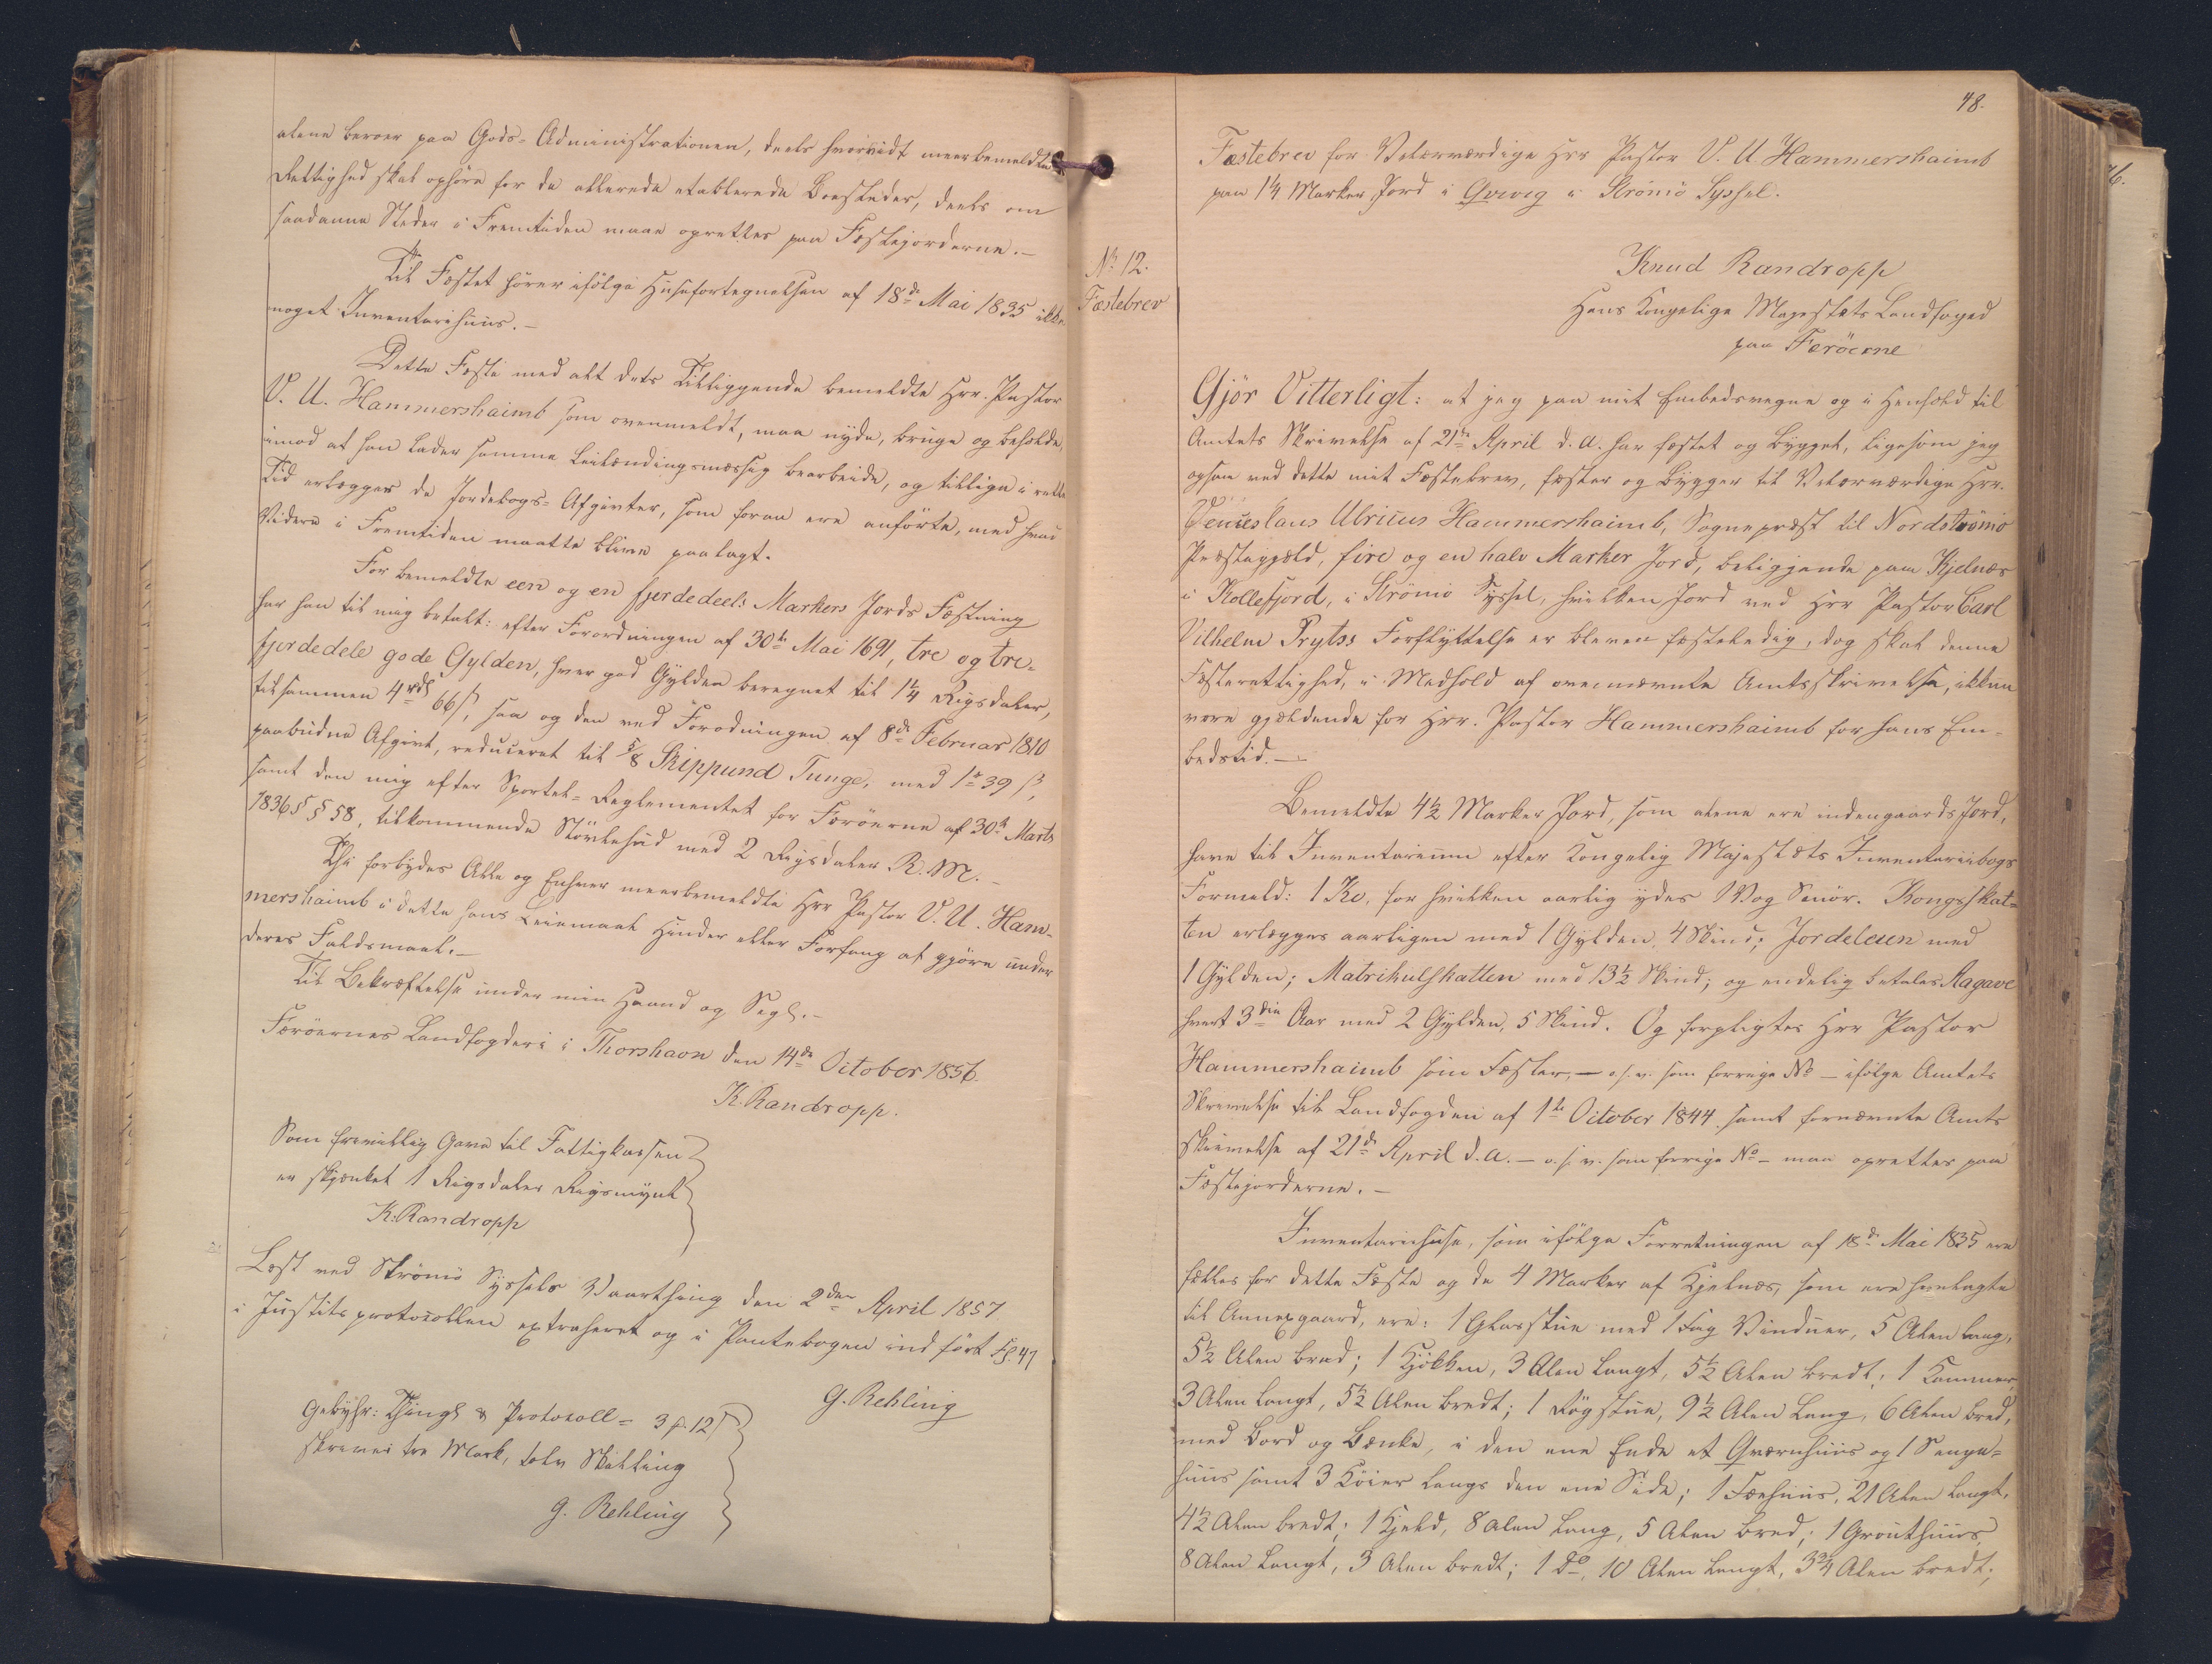 alene beroer paa Gods-Administrationen, deels hvorvidt meerbemeldte
Rettighed skal ophöre for de allerede etablerede Boesteder, deels om
saadanne Steder i Fremtiden maae oprettes paa Fæstejorderne.-
Til Fæstet hörer ifölge Huusefortegnelsen af 18de Mai 1835 ikke
noget Inventariihuus.-
Dette Fæste med alt dets Tilliggende bemeldte Hrr. Pastor
V. U. Hammershaimb som ovenmeldt, maa nyde, bruge og beholde,
imod at han lader samme Leilændingsmæssig bearbeide, og tillige i rette
Tid erlægger de Jordebogs-Afgivter, som foran ere anförte, med hvad
Videre i Fremtiden maatte blive paalagt.
For bemeldte een og en fjerdedeels Markers Jords Fæstning
har han til mig betalt: efter Forordningen af 30te Mai 1691, tre og tre-
fjerdedele gode Gylden, hver god Gylden beregnet til 1¼ Rigsdaler,
tilsammen 4rdl 66ß, saa og den ved Forodningen af 8de Februar 1810
paabudne Afgivt, reduceret til ⅝ Skippund Tunge, med 1rd 39 ß,
samt den mig efter Sportel-Reglementet for Færöerne af 30te Marts
1836 § 58, tilkommende Stövlehud med 2 Rigsdaler R. M.-
Thi forbydes Alle og Enhver meerbemeldte Hrr Pastor V. U. Ham-
mershaimb i dette hans Leiemaal Hinder eller Forfang at gjöre under
deres Faldsmaal.-
Til Bekræftelse under min Haand og Segl.-
Færöernes Landfogderi i Thorshavn den 14de October 1856.
K. Randropp.
Som frivillig Gave til Fattigkassen
er skjænket 1 Rigsdaler Rigsmynt
K. Randropp
Læst ved Strömö Syssels Vaarthing den 2den April 1857
i Justitsprotocollen extraheret og i Pantebogen indfört Fol. 47
G. Rehling
Gebyhr: Thingl & Protocoll = 3 ₰ 12 ß
skriver tre Mark, tolv Skilling
G. Rehling
48.
Fæstebrev for Velærværdige Hrr Pastor V. U. Hammershaimb
paa 1¼ Marker Jord i Qvivig i Strömö Syssel.
No 12.
Fæstebrev
Knud Randropp
Hans Kongelige Majestæts Landfoged
paa Færöerne
Gjör Vitterligt: at jeg paa mit Embedsvegne og i Henhold til
Amtets Skrivelse af 21de April d. A. har fæstet og bygget, ligesom jeg
ogsaa ved dette mit Fæstebrev, fæster og bygger til Velærværdige Hrr.
Venceslaus Ulricus Hammershaimb, Sognepræst til Nordströmö
Præstegjæld, fire og en halv Marker Jord, beliggende paa Kjelnæs
i Kollefjord, i Strömö Syssel, hvilken Jord ved Hrr Pastor Carl
Vilhelm Prytss Forflyttelse er bleven fæsteledig, dog skal denne
Fæsterettighed, i Medhold af ovennævnte Amtsskrivelse, ikkun
være gjældende for Hrr. Pastor Hammershaimb for hans Em-
bedstid.-
Bemeldte 4½ Marker Jord, som alene ere indengaards Jord,
have til Inventarium efter Kongelig Majestæts Inventariibogs
Formeld: 1 Ko, for hvilken aarlig ydes 1 Vog Smör. Kongsskat-
ten erlægges aarligen med 1 Gylden, 4 Skind; Jordeleien med
1 Gylden; Matrikulskatten med 13½ Skind; og endelig betales Aagave
hvert 3die Aar med 2 Gylden, 5 Skind. Og forpligtes Hrr Pastor
Hammershaimb som Fæster, - o. s. v. som forrige No - ifölge Amtets
Skrivelse til Landfogden af 1te October 1844 samt fornævnte Amts
skrivelse af 21de April d. A. - o. s. v. som forrige No - maa oprettes paa
Fæstejorderne.-
Inventariihuse, som ifölge Forretningen af 18de Mai 1835 ere
fælles for dette Fæste og de 4 Marker af Kjelnæs, som ere henlagte
til Annexgaard, ere: 1 Glasstue med 1 Fag Vinduer, 5 Alen lang,
5½ Alen bred; 1 Kjökken, 3 Alen langt, 5½ Alen bredt; 1 Kammer,
3 Alen langt, 5½ Alen bredt; 1 Rögstue, 9½ Alen lang, 6 Alen bred,
med Bord og Bænke, i den ene Ende et Qværnhuus og 1 Senge-
huus samt 3 Köier langs den ene Side; 1 Fæehuus, 21 Alen langt,
4½ Alen bredt; 1 Hjeld, 8 Alen lang, 5 Alen bred; 1 Grouthuus,
8 Alen langt, 3 Alen bredt; 1 do, 10 Alen langt, 3¾ Alen bredt;